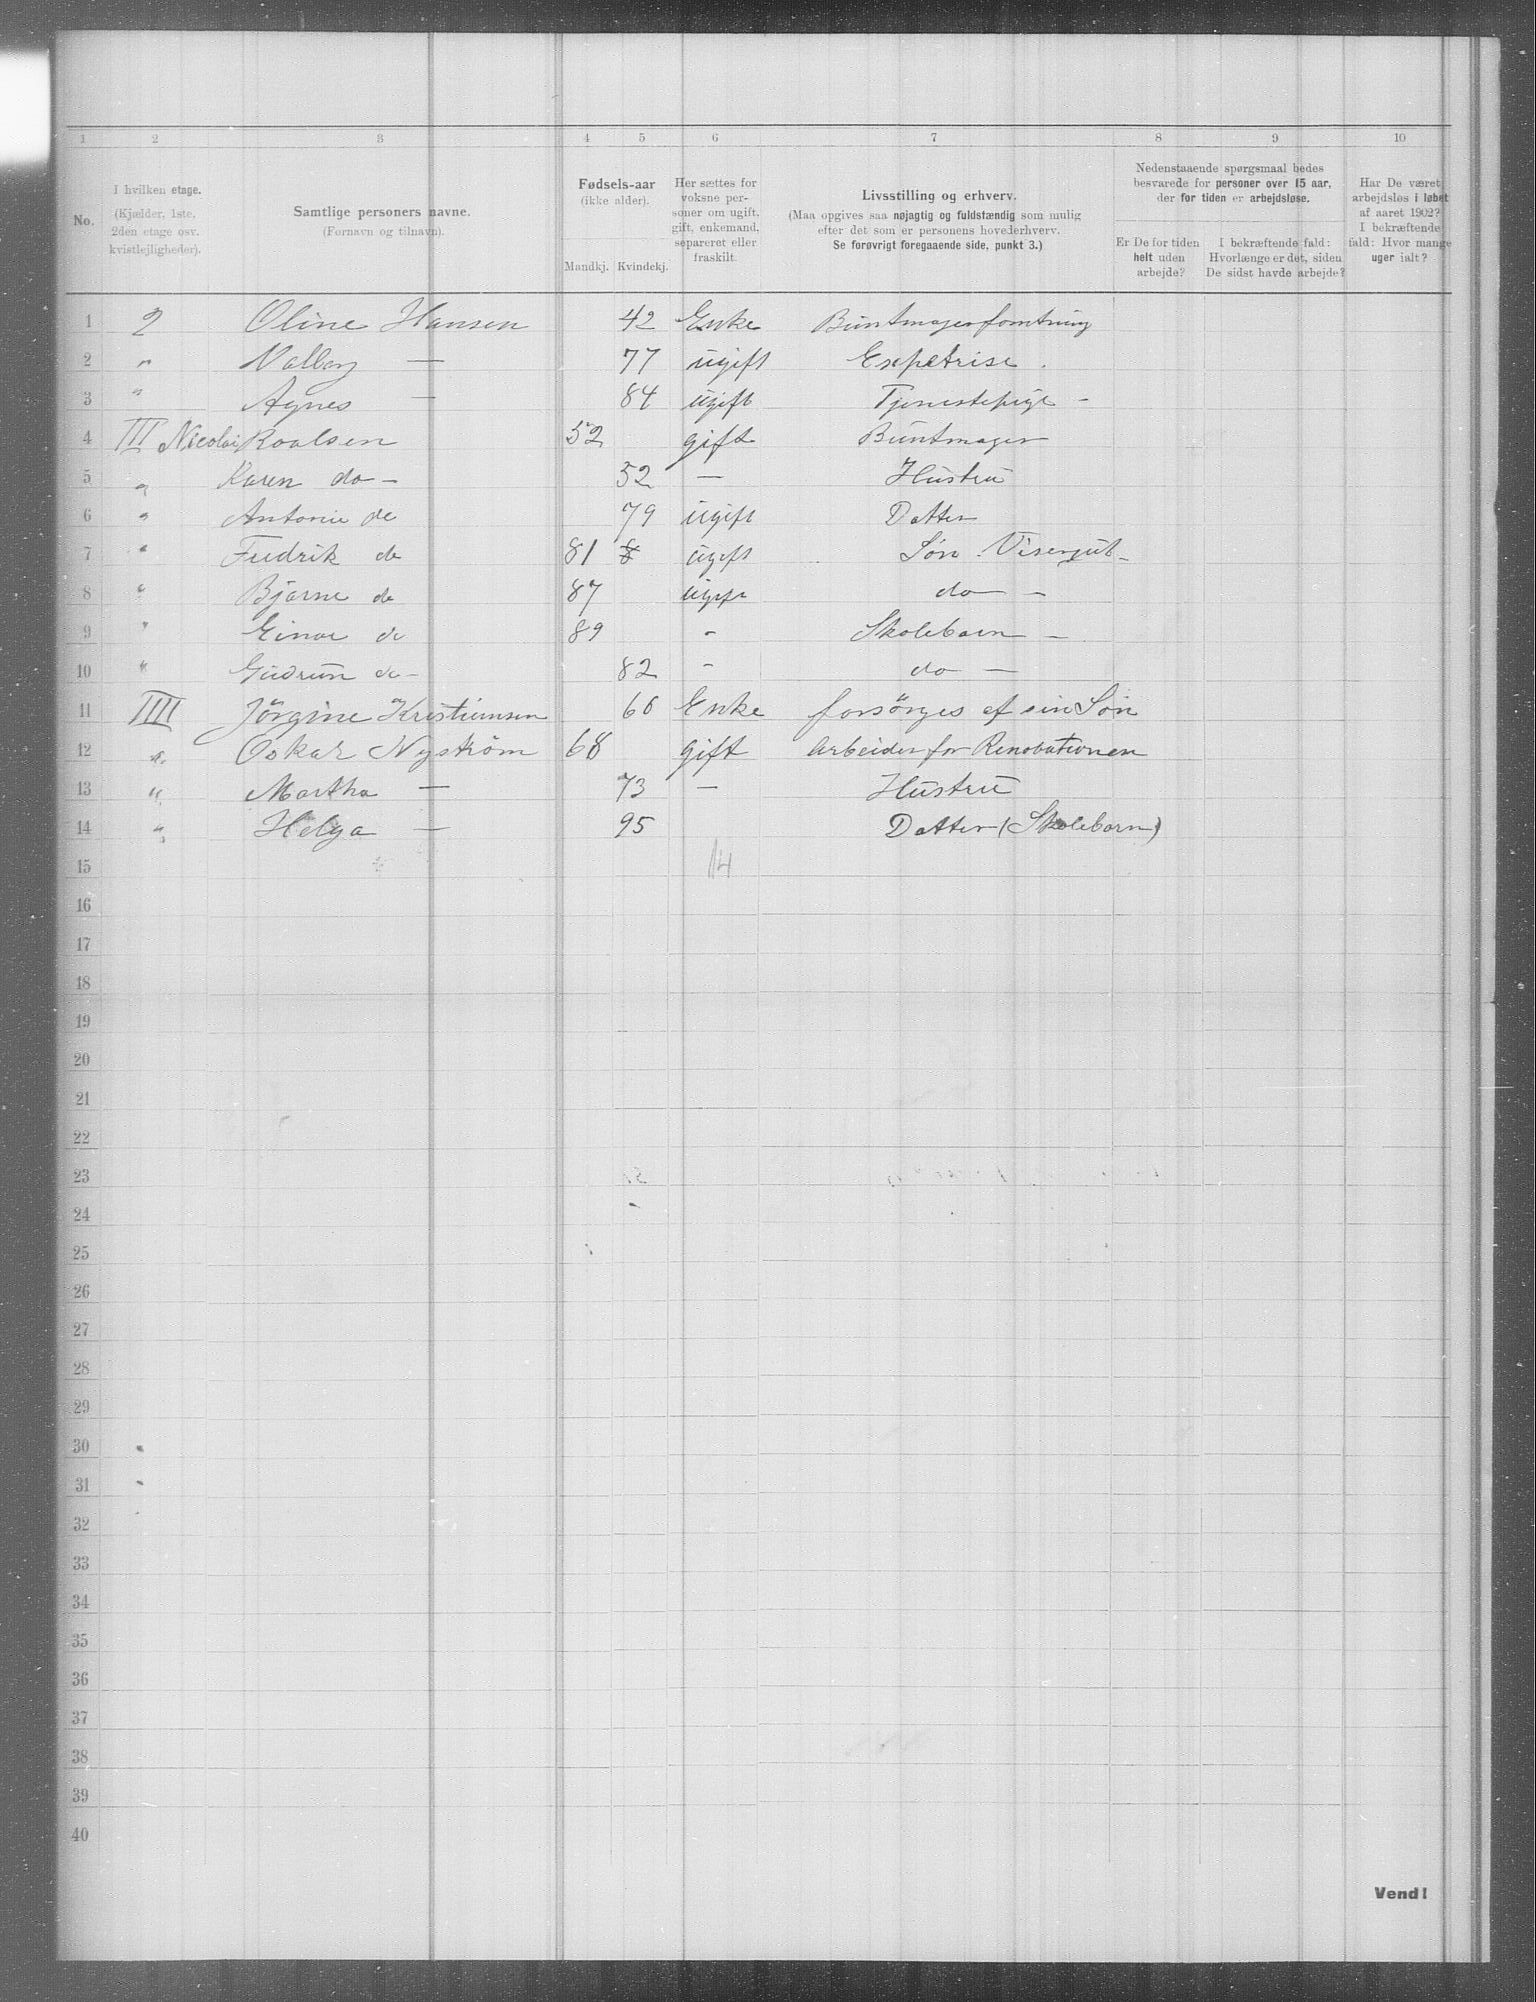 1 2 3 4 5 6 7 8 9 10
No.
I hvilken etage. (Kjælder, 1ste, 2den etage osv. kvistlejligheder).
Samtlige personers navne. (Fornavn og tilnavn).
Fødsels-aar (ikke alder). Mandkj. Kvindekj.
Her sættes for voksne personer om ugift, gift, enkemand, separeret eller fraskilt.
Livsstilling og erhverv. (Maa opgives saa nøjagtig og fuldstændig som mulig efter det som er personens hovederhverv. Se forøvrigt foregaaende side, punkt 3.)
Nedenstaaende spørgsmaal bedes besvarede for personer over 15 aar, der for tiden er arbejdsløse.
Er De for tiden helt uden arbejde?
I bekræftende fald: Hvorlænge er det, siden De sidst havde arbejde?
Har De været arbejdsløs i løbet af aaret 1902? I bekræftende fald: Hvor mange uger ialt?
1 2 Oline Hansen 42 Enke Buntmagerforretning
2 " Valborg — 77 ugift Expetrise .
3 " Agnes — 84 ugift Tjenestepige -
4 III Nicolai Roalsen 52 gift Buntmager
5 " Karen do - 52 — Hustru
6 " Antonie do 79 ugift Datter
7 " Fredrik do 81 8 ugift Søn Visergut -
8 " Bjarne do 87 ugift do -
9 " Einar do 89 - Skolebarn -
10 " Gudrun do - 82 - do —
11 IIII Jörgine Kristiansen 66 Enke forsörges af sin Søn
12 " Oskar Nyström 68 gift Arbeider for Renovationen
13 " Martha — 73 — Hustru
14 " Helga — 95 Datter (Skolebarn)
15 14
16
17
18
19
20
21
22
23
24
25
26
27
28
29
30
31
32
33
34
35
36
37
38
39
40
Vend!